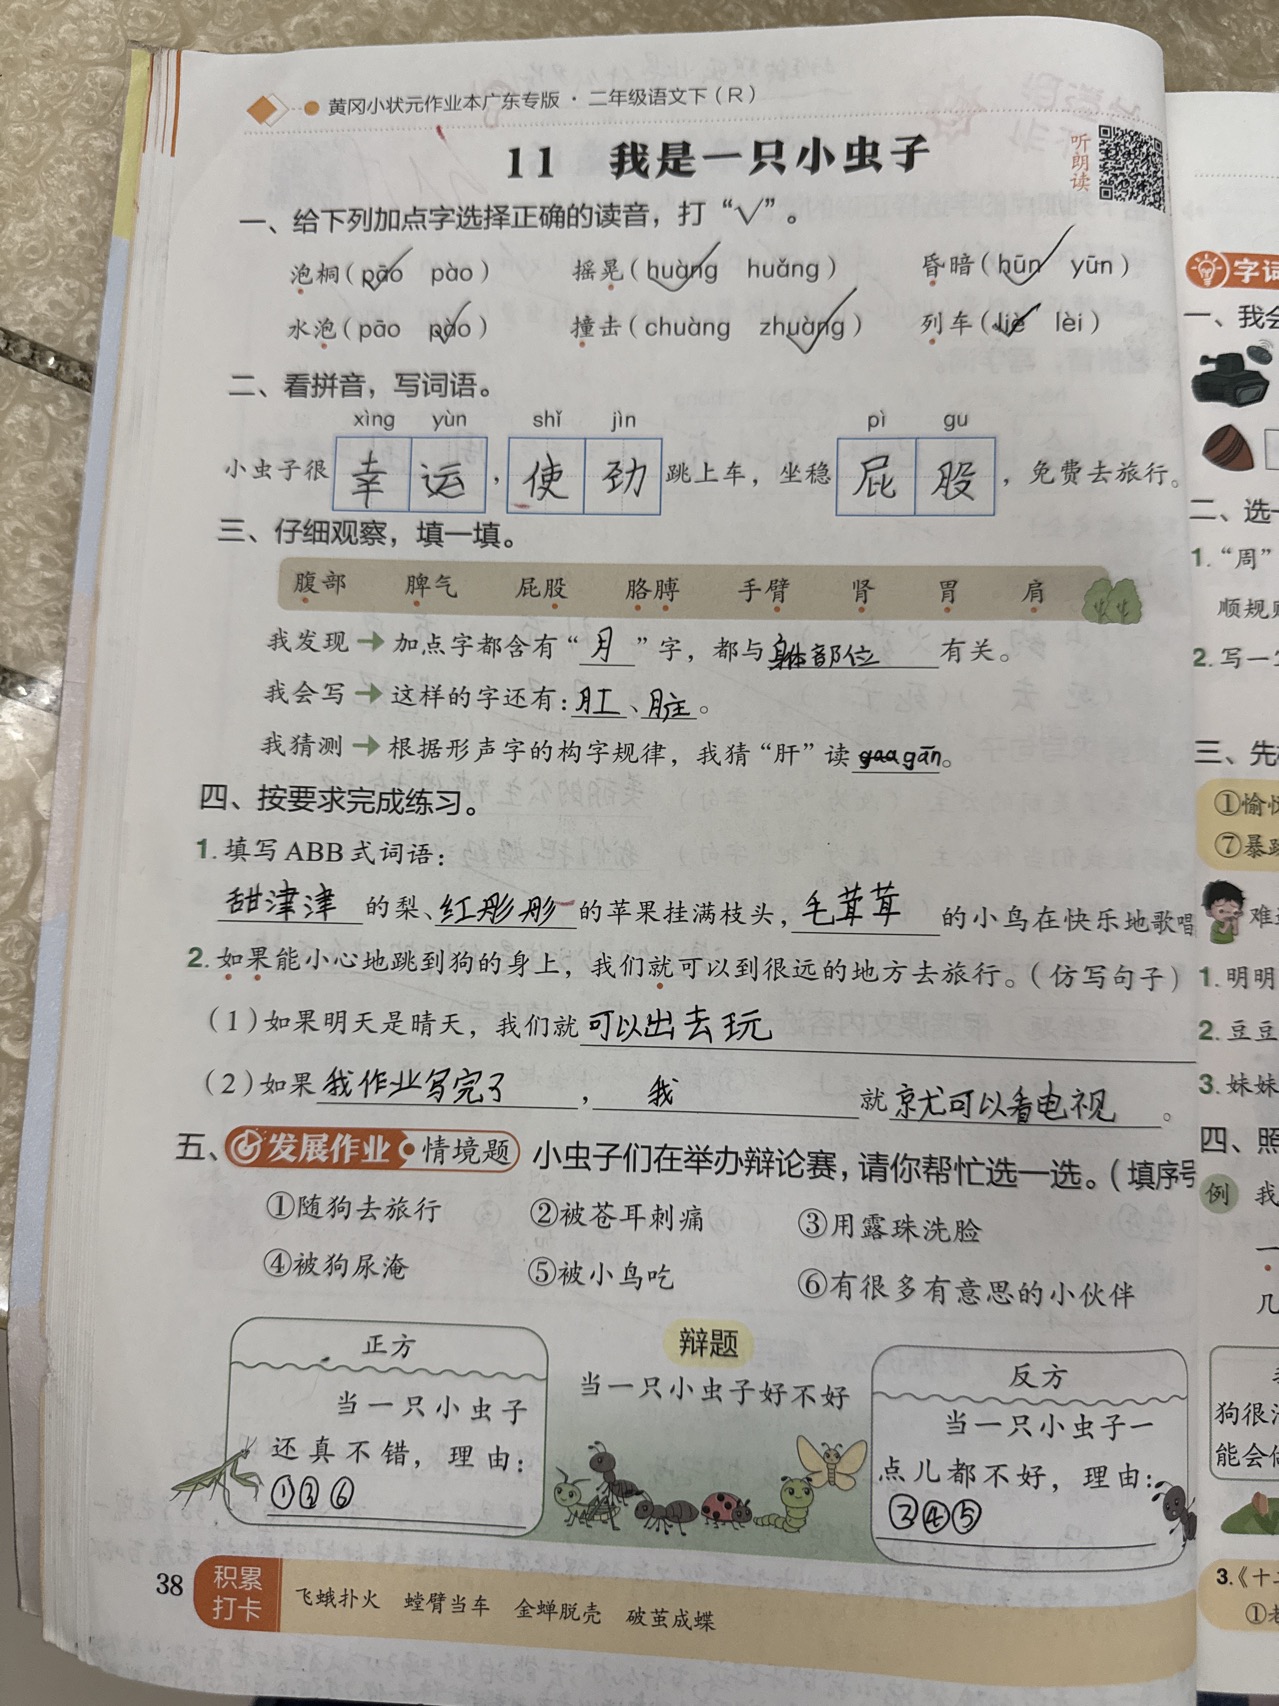 黄冈小状元作业本广东专版·二年级语文下(R)
11 我是一只小虫子
听朗读
一、给下列加点字选择正确的读音，打“√”。
泡桐(pāo pào) 摇晃(huàng huǎng) 昏暗(hūn yūn)
水泡(pāo pào) 撞击(chuàng zhuàng) 列车(liè lèi)
二、看拼音，写词语。
xìng yùn shǐ jìn pì gu
小虫子很幸运，使劲跳上车，坐稳屁股，免费去旅行。
三、仔细观察，填一填。
腹部 脾气 屁股 胳膊 手臂 肾 胃 肩
我发现→加点字都含有“月”字，都与身体部位有关。
我会写→这样的字还有：肛、脏。
我猜测→根据形声字的构字规律，我猜“肝”读gān。
四、按要求完成练习。
1.填写ABB式词语：
甜津津的梨、红彤彤的苹果挂满枝头，毛茸茸的小鸟在快乐地歌唱
2.如果能小心地跳到狗的身上，我们就可以到很远的地方去旅行。(仿写句子)
(1)如果明天是晴天，我们就可以出去玩
(2)如果我作业写完了，我就就可以看电视。
五、发展作业 情境题 小虫子们在举办辩论赛，请你帮忙选一选。(填序号
①随狗去旅行 ②被苍耳刺痛 ③用露珠洗脸
④被狗尿淹 ⑤被小鸟吃 ⑥有很多有意思的小伙伴
正方
当一只小虫子
还真不错，理由：
辩题
当一只小虫子好不好
反方
当一只小虫子一
点儿都不好，理由：
④⑤
38 积累打卡 飞蛾扑火 螳臂当车 金蝉脱壳 破茧成蝶
字词
一、我会
二、选一
1.“周”
顺规则
2.写一
三、先
①愉快
⑦暴躁
难过
1.明明
2.豆豆
3.妹妹
四、照
例 我
一
几
狗很
能会
3.《十二
①老